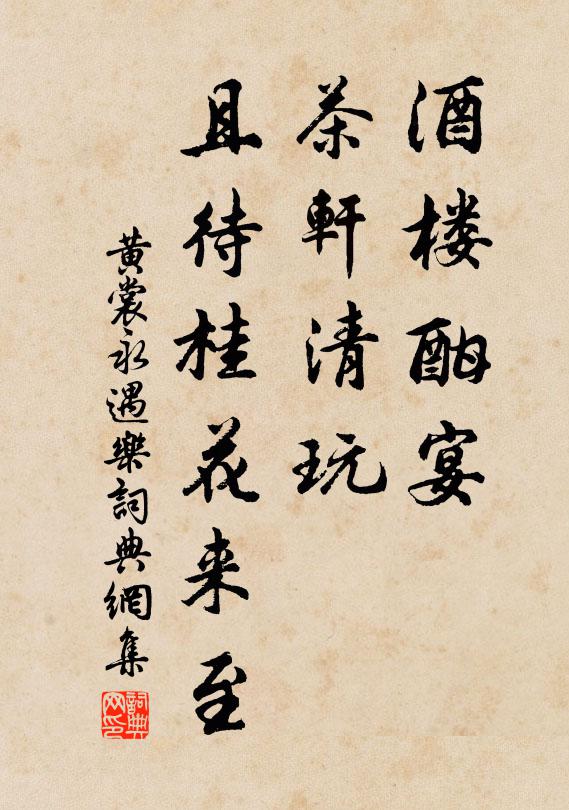 酒楼酣宴
茶軒清玩
且待桂花来至
黄裳永遇樂詞典網集
詞典网印